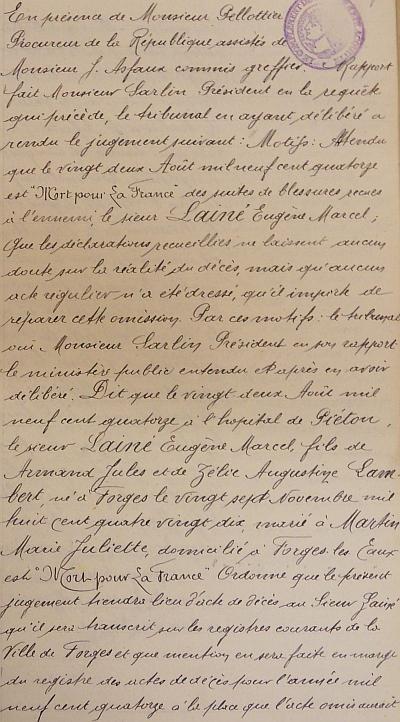 En présence de Monsieur Pellottier
Procureur de la République assistés de
Monsieur J. Asfaux commis greffier. Rapport
fait Monsieur Sarlin Président en la requête
qui précède, le tribunal en ayant délibéré a
rendu le jugement suivant : Motifs : Attendu
que le vingt deux Août mil neuf cent quatorze
est "Mort pour La France" des suites de blessures recues
à l'ennemi, le sieur LAINÉ Eugène Marcel ;
Que les déclarations recueillies ne laissent aucun
doute sur la réalité du décès, mais qu'aucun
acte régulier n'a été dressé, qu'il importe de
réparer cette omission. Par ces motifs : le tribunal
oui Monsieur Sarlin Président en son rapport
le ministère public entendu et après en avoir
délibéré. Dit que le vingt deux Août mil
neuf cent quatorze, à l'hopital de Piéton,
le sieur LAINÉ Eugène Marcel, fils de
Armand Jules et de Zélie Augustine Lam-
bert né à Forges le vingt sept Novembre mil
huit cent quatre vingt dix marié à Martin
Marie Juliette, domicilié à Forges les Eaux
est "Mort pour La France" Ordonne que le présent
jugement tiendra lieu d'acte de décès au Sieur Lainé
qu'il sera transcrit sur les registres courants de la
Ville de Forges et que mention en sera faite en marge
du registre des actes de décès pour l'année mil
neuf cent quatorze à la place que l'acte omis aurait